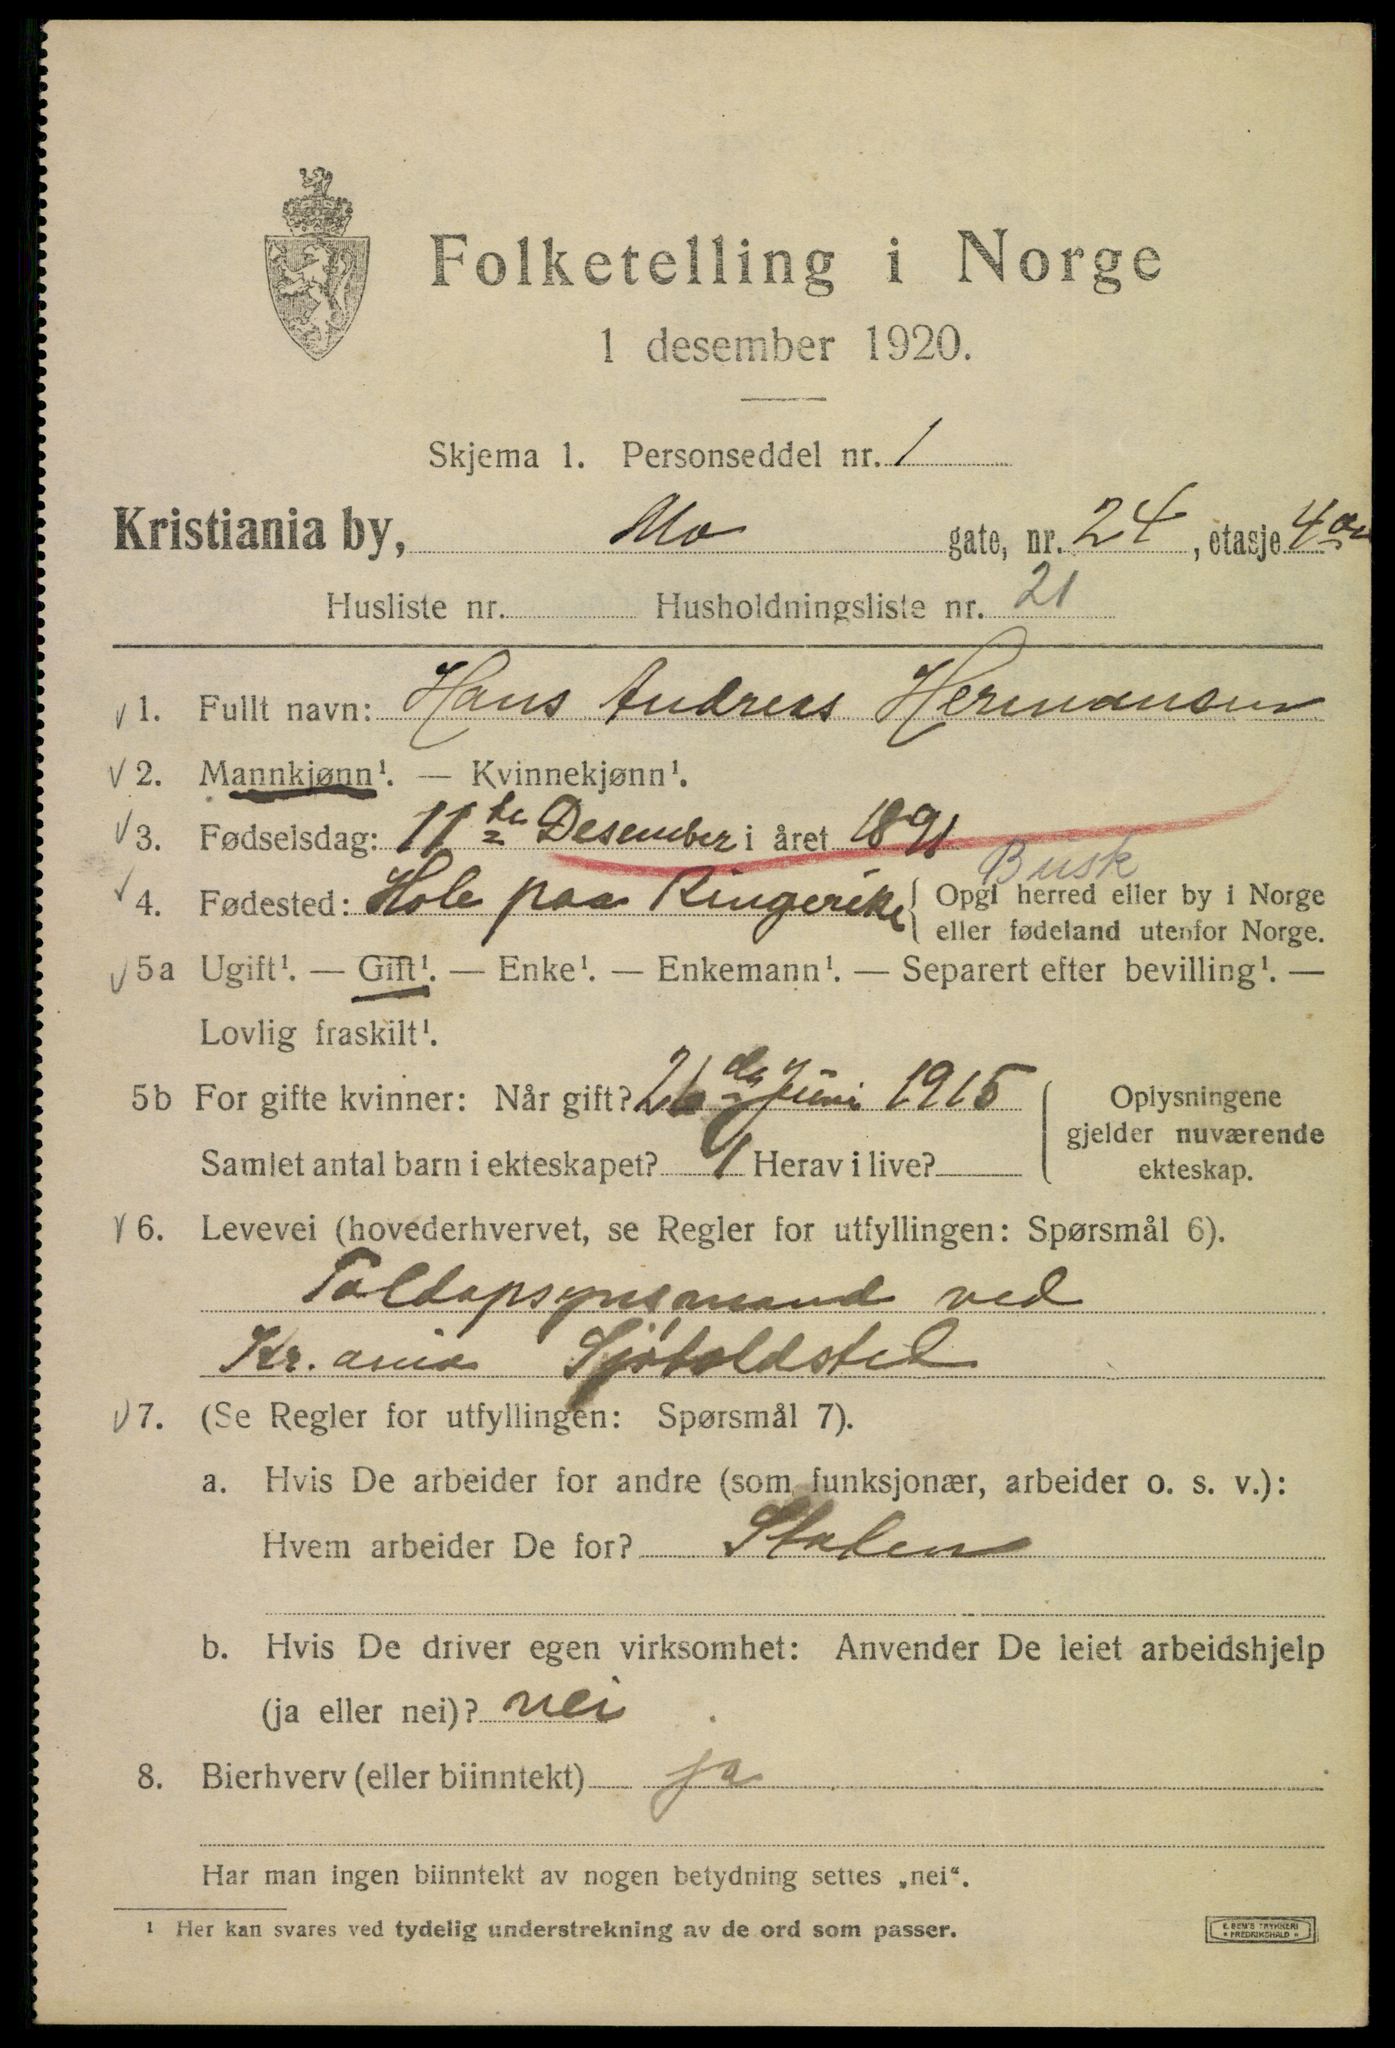 Folketelling i Norge
1 desember 1920.
Skjema 1. Personseddel nr. 1
Kristiania by, Mo gate, nr. 24, etasje 4
Husliste nr. Husholdningsliste nr. 21
√ 1. Fullt navn: Hans Andreas Hermansen
√ 2. Mannkjønn¹. — Kvinnekjønn¹.
√ 3. Fødselsdag: 11te Desember i året 1891
Busk
√ 4. Fødested: Hole paa Ringerike { Opgi herred eller by i Norge
eller fødeland utenfor Norge.
√ 5a Ugift¹. — Gift¹. — Enke¹. — Enkemann¹. — Separert efter bevilling¹. —
Lovlig fraskilt¹.
5b For gifte kvinner: Når gift? 26 de Juni 1915
Samlet antal barn i ekteskapet? 1 Herav i live?
Oplysningene
gjelder nuværende
ekteskap.
√ 6. Levevei (hovederhvervet, se Regler for utfyllingen: Spørsmål 6).
Toldopsynsmand ved
Kr.ania Sjøtoldsted
√ 7. (Se Regler for utfyllingen: Spørsmål 7).
a. Hvis De arbeider for andre (som funksjonær, arbeider o. s. v.):
Hvem arbeider De for? Staten
b. Hvis De driver egen virksomhet: Anvender De leiet arbeidshjelp
(ja eller nei)? nei
8. Bierhverv (eller biinntekt) ja
Har man ingen biinntekt av nogen betydning settes „nei“.
¹ Her kan svares ved tydelig understrekning av de ord som passer.
E. SEM'S TRYKKERI
* FREDRIKSHALD *